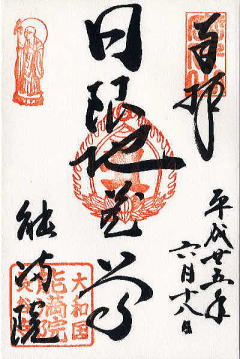 奉拝
平成廿五年
六月十八日
日限地蔵尊
能満院
大和国
能満院